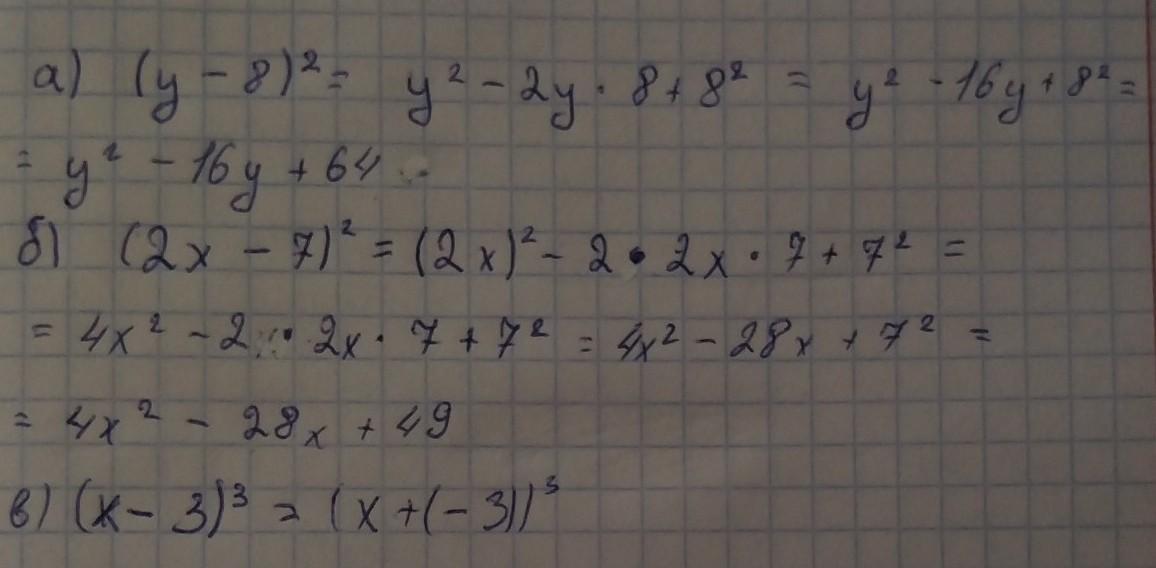 а) (y - 8)² = y² - 2y · 8 + 8² = y² - 16y + 8² =
= y² - 16y + 64
б) (2x - 7)² = (2x)² - 2 · 2x · 7 + 7² =
= 4x² - 2 · 2x · 7 + 7² = 4x² - 28x + 7² =
= 4x² - 28x + 49
в) (x - 3)³ = (x + (- 3))³